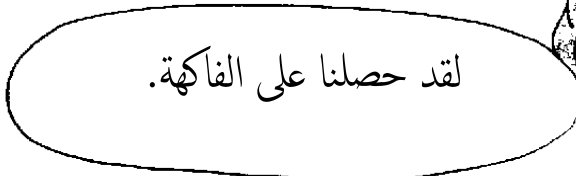 لقد حصلنا على الفاكهة.